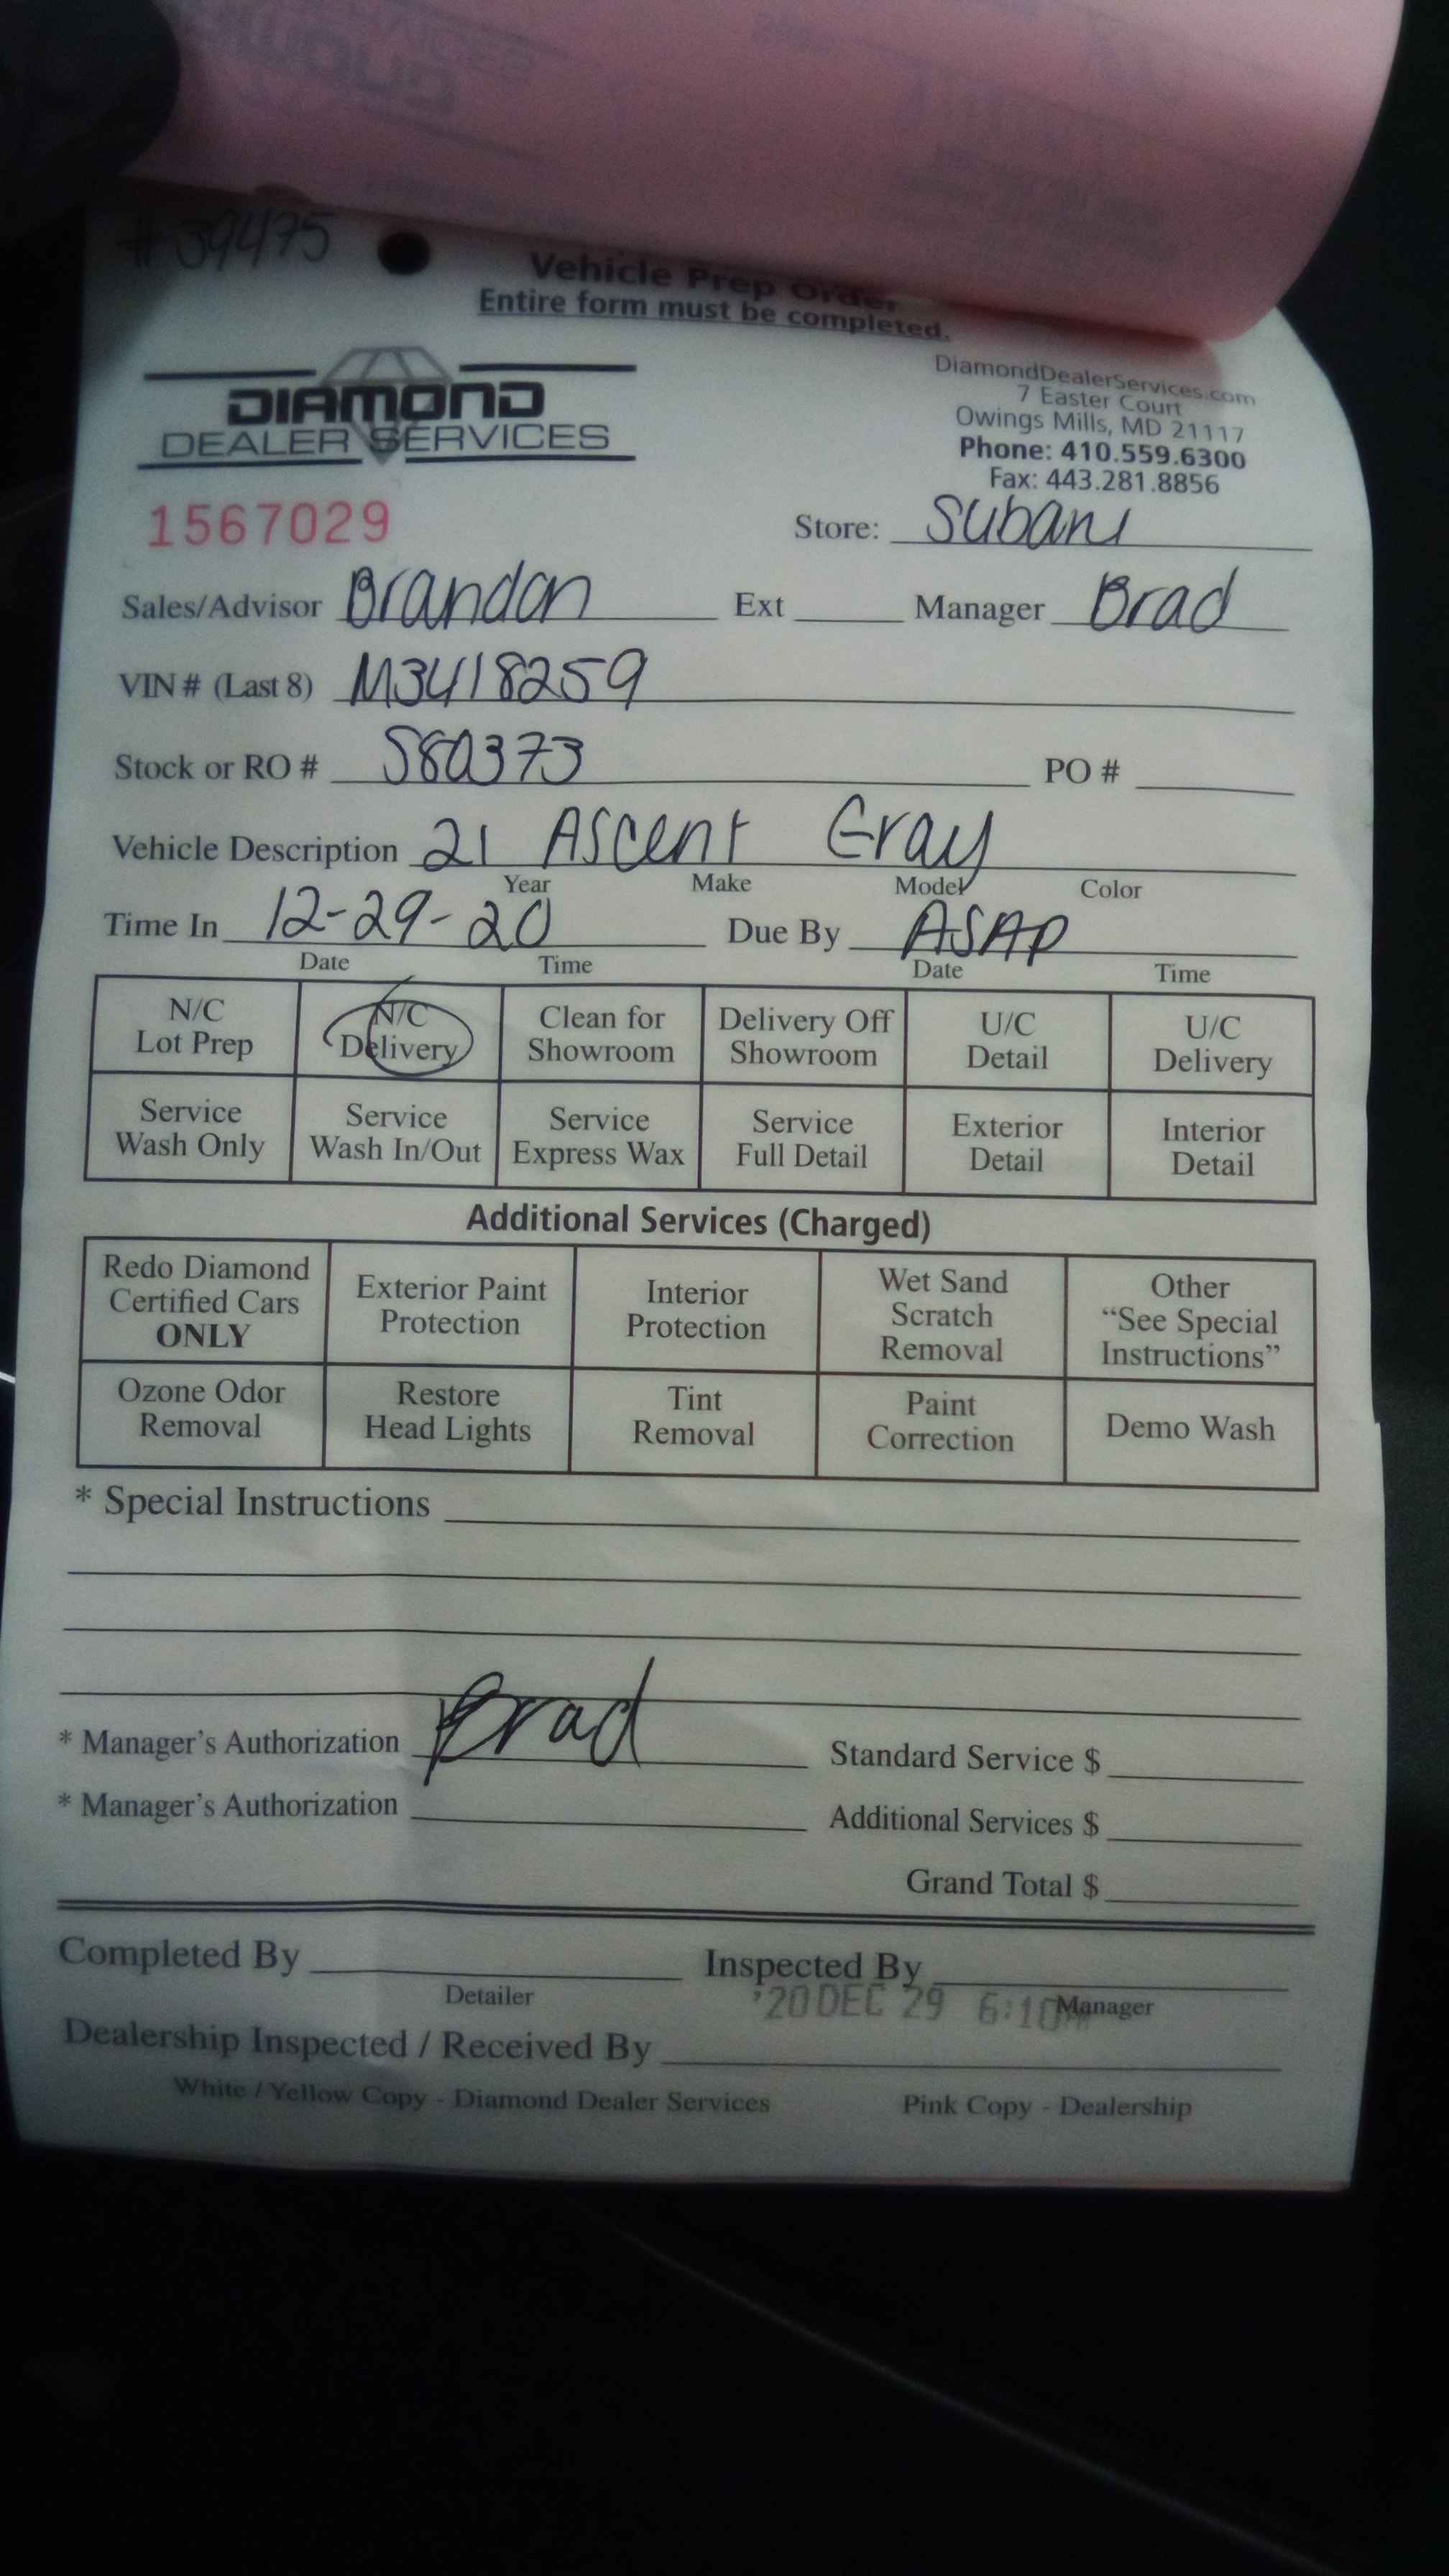 # 39475
Vehicle Prep Order
Entire form must be completed.
DIAMOND
DEALER SERVICES
DiamondDealerServices.com
7 Easter Court
Owings Mills, MD 21117
Phone: 410.559.6300
Fax: 443.281.8856
1567029
Store: Subaru
Sales/Advisor Brandon Ext Manager Brad
VIN # (Last 8) M3418259
Stock or RO # S80373 PO #
Vehicle Description 21 Ascent Gray
Year Make Model Color
Time In 12-29-20 Due By ASAP
Date Time Date Time
N/C Lot Prep
N/C Delivery
Clean for Showroom
Delivery Off Showroom
U/C Detail
U/C Delivery
Service Wash Only
Service Wash In/Out
Service Express Wax
Service Full Detail
Exterior Detail
Interior Detail
Additional Services (Charged)
Redo Diamond Certified Cars ONLY
Exterior Paint Protection
Interior Protection
Wet Sand Scratch Removal
Other “See Special Instructions”
Ozone Odor Removal
Restore Head Lights
Tint Removal
Paint Correction
Demo Wash
* Special Instructions
* Manager's Authorization Brad Standard Service $
* Manager's Authorization Additional Services $
Grand Total $
Completed By Inspected By
Detailer Manager
'20 DEC 29 6:10
Dealership Inspected / Received By
White / Yellow Copy - Diamond Dealer Services Pink Copy - Dealership